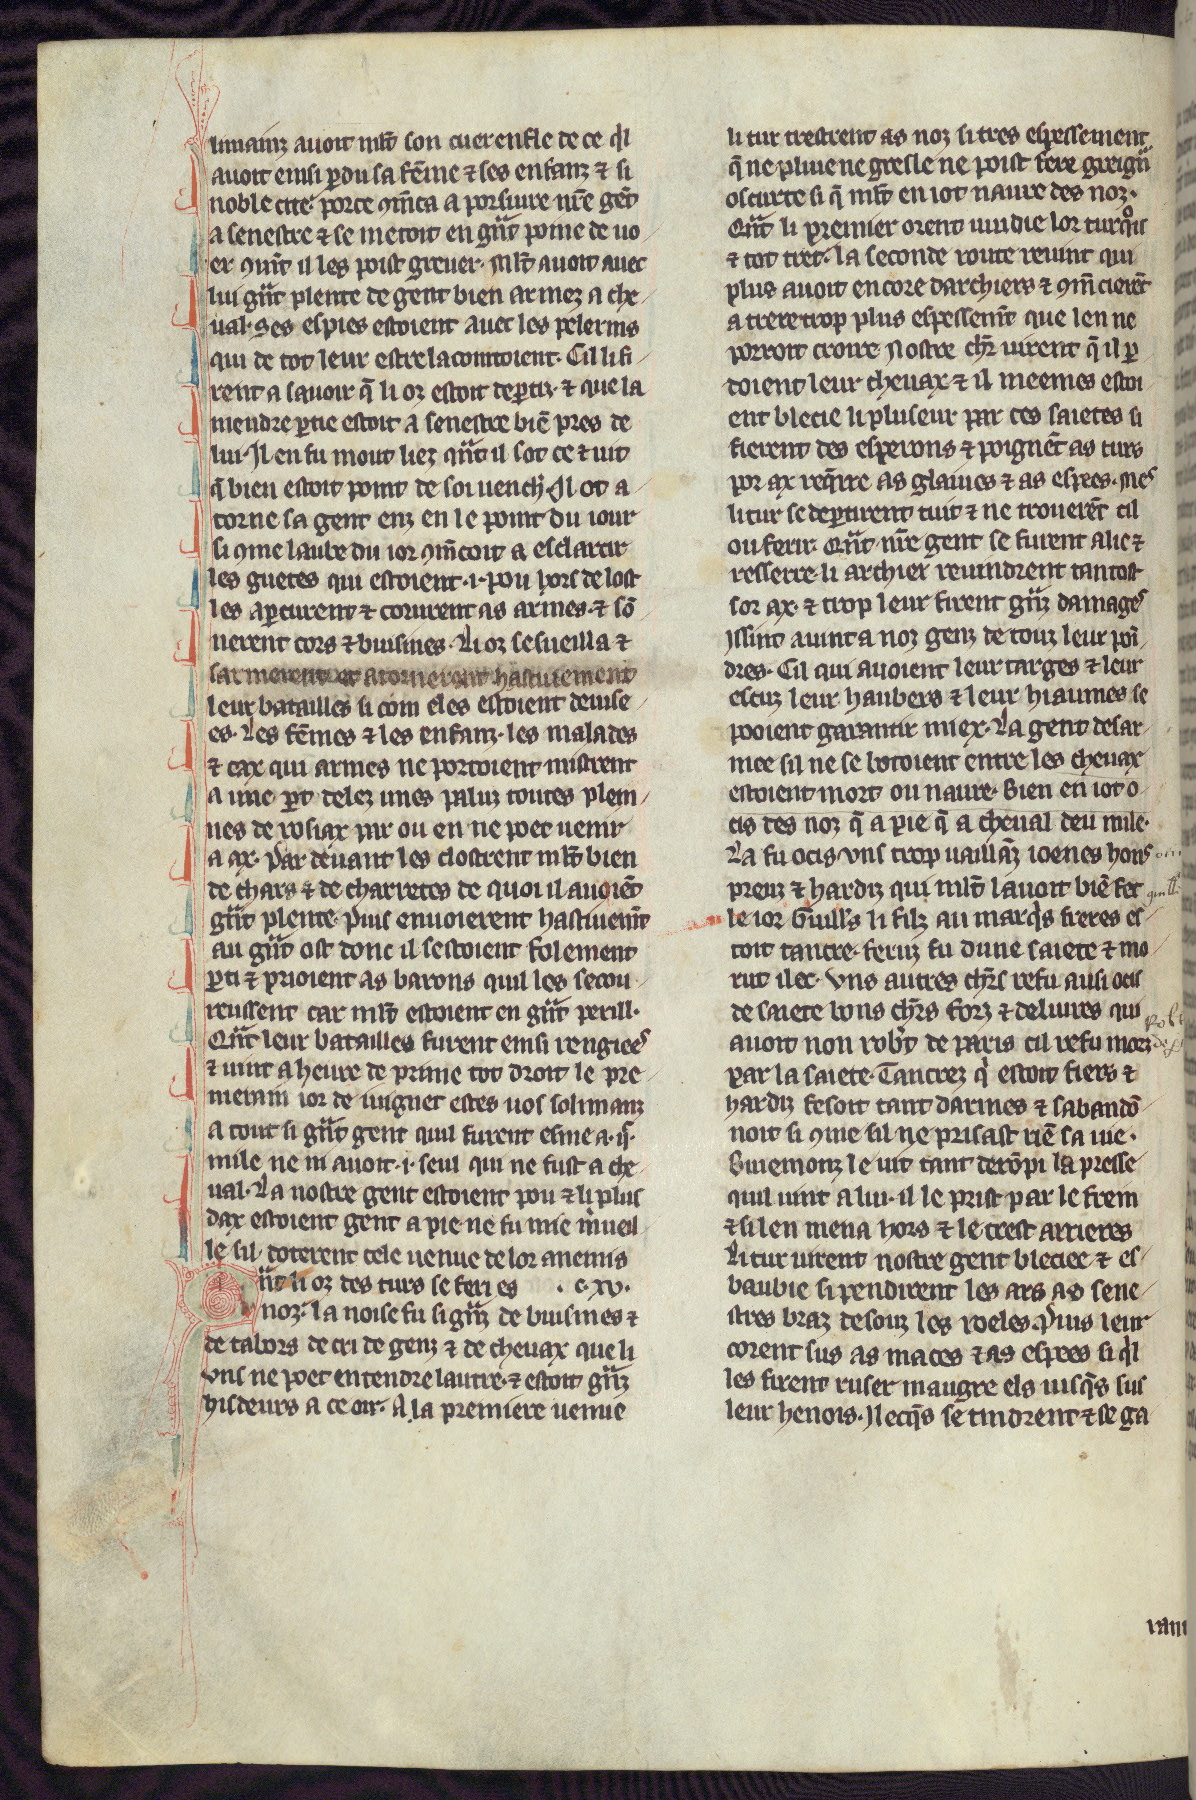 limanz auoit ml̃t son cuer enfle de ce q̃l
auoit einsi ꝑdu sa fẽme ⁊ ses enfanz ⁊ si
noble cite. por ce ꝯm̃ca a porsiure nr̃e gẽt
a senestre ⁊ se metoit en gñt poine de uo
er ꝯmt̃ il les poist greuer. Ml̃t auoit auec
lui gñt plente de gent bien armez a che
ual. Ses espies estoient auec les pelerins
qui de tot leur estre lacointoient. Cil li fi
rent a sauoir q̃ li oz estoit deꝑtiz. ⁊ que la
mendre ꝑtie estoit a senestre biẽ pres de
lui. Il en fu mout liez qñt il sot ce ⁊ uit
q̃ bien estoit point de soi uench̃. Il ot a
torne sa gent enz en le point du iour
si ꝯme laube du ior ꝯm̃coit a esclarcir
les guetes qui estoient .i. pou hors de lost
les aꝑcurent ⁊ corurent as armes. ⁊ sõ
nerent cors ⁊ buisines. Li oz sesueilla ⁊
sarmerent et atornerent hastiuement
leur batailles si com eles estoient deuise
es. Les fẽmes ⁊ les enfanz. les malades
⁊ cax qui armes ne portoient mistrent
a une ꝑt delez unes paluz toutes plein
nes de rosiax par ou en ne poet uenir
a ax. Par deuant les clostrent ml̃t bien
de chars ⁊ de charretes de quoi il auoiẽt
gñt plente. Puis enuoierent hastiuem̃t
au gñt ost donc il sestoient folement
ꝑti ⁊ prioient as barons quil les secou
reussent car ml̃t estoient en gñt perill.
Qñt leur batailles furent einsi rengiees
⁊ uint a heure de prime tot droit le pre
merain ior de iuignet estes uos solimanz
a tout si gñt gent quil furent esme a .
mile ne ni auoit .i. seul qui ne fust a che
ual. La nostre gent estoient pou ⁊ li plus
dax estoient gent a pie ne fu mie m̃ueil
le sil doterent cele uenue de lor anemis
Qñt li oz des turs se feri es . c. xv.
noz. la noise fu si gñz de buisines ⁊
de tabors de cri de genz ⁊ de cheuax que li
uns ne poet entendre lautre. ⁊ estoit gñz
hisdeurs a ce oir. A la premiere uenue
li tur trestrent as noz si tres espessement
q̃ ne pluie ne gresle ne poist fere greign̄
oscurte si q̃ ml̃t en iot naure des noz.
Qñt li premier orent uuidie lor turq̃is
⁊ tot tret. la seconde route reuint qui
plus auoit encore darchiers ⁊ ꝯm̃cierẽt
a trere trop plus espessem̃t que len ne
porroit croire. Nostre ch̃r uirent q̃ il ꝑ
doient leur cheuax ⁊ il meemes estoi
ent blecie li pluseur par ces saietes si
fierent des esperons ⁊ poignẽt as turs
por ax req̃rre as glaiues ⁊ as espees. Mes
li tur se deꝑtirent tuit ⁊ ne trouerẽt cil
ou ferir. Qñt nr̃e gent se furent alie ⁊
resserre. li archier reuindrent tantost
sor ax. ⁊ trop leur firent gñz damages
Issint auint a noz genz de touz leur pou
dres. Cil qui auoient leur targes ⁊ leur
escuz leur haubers ⁊ leur hiaumes se
pooient garantir miex. La gent desar
mee sil ne se botoient entre les cheuax
estoient mort ou naure. Bien en iot o
cis des noz q̃ a pie q̃ a cheual deu mile.
La fu ocis uns trop uaillãz ioenes homs
preuz ⁊ hardiz qui ml̃t lauoit biẽ fet
le ior Guills li filz au marq̃s freres es
toit tancre. feruz fu dune saiete ⁊ mo
rut ilec. Vns autres ch̃rs refu ausi ocis
de saiete bons ch̃rs forz ⁊ deliures qui
auoit non rob̃t de paris cil refu morz
par la saiete. Tancrez q̇ estoit fiers ⁊
hardiz fesoit tant darmes ⁊ sabandõ
noit si ꝯme sil ne prisast riẽ sa uie.
Buiemonz le uit tant derõpi la presse
quil uint a lui. il le prist par le frein
⁊ si len mena hors ⁊ le trest arrieres
Li tur uirent nostre gent bleciee ⁊ es
baubie si pendirent les ars as sene
stres braz desouz les roeles. Puis leur
corent sus as maces ⁊ as espees si q̃l
les firent ruser maugre els iusq̃s sus
leur henois. Ilecq̃s se tindrent ⁊ se ga